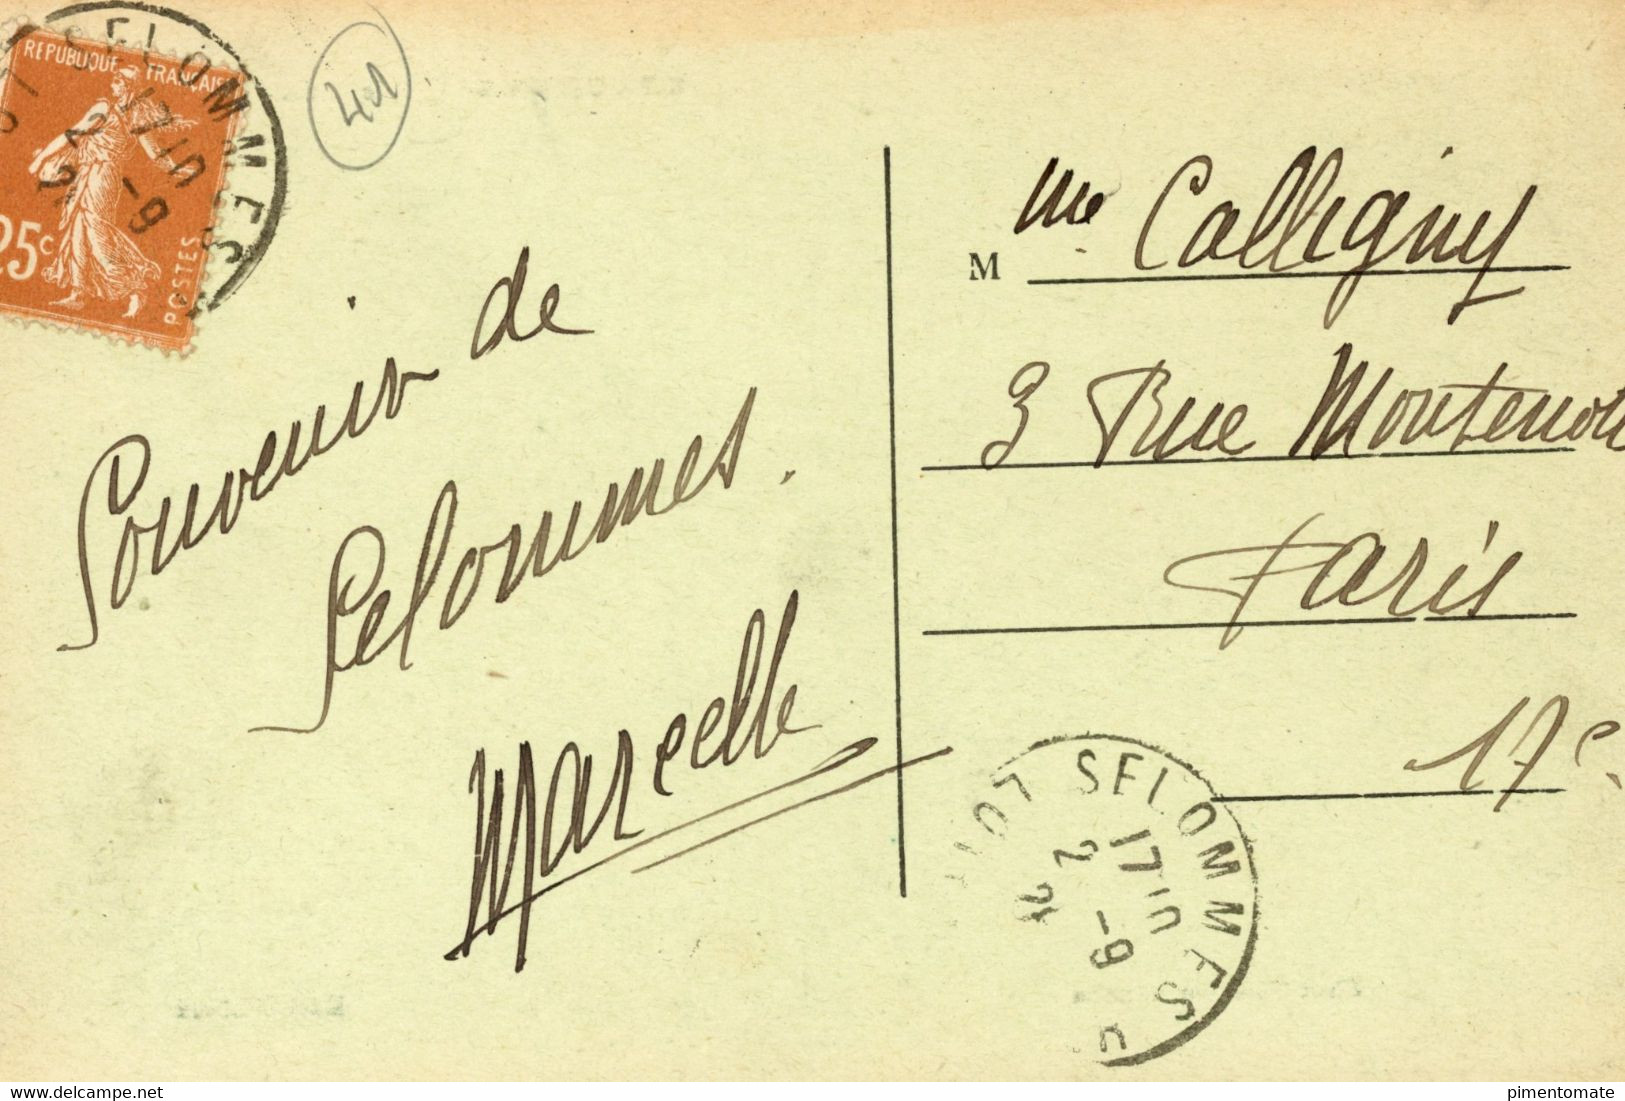 REPUBLIQUE FRANÇAISE
25c
POSTES
SELOMMES
17
2 -9
41
Souvenir de
Selommes.
Marcelle
M me Calligny
3 Rue Montenotte
Paris
17e
LOT SELOMMES
17
2 -9
Fabriqué en France
pimentomate